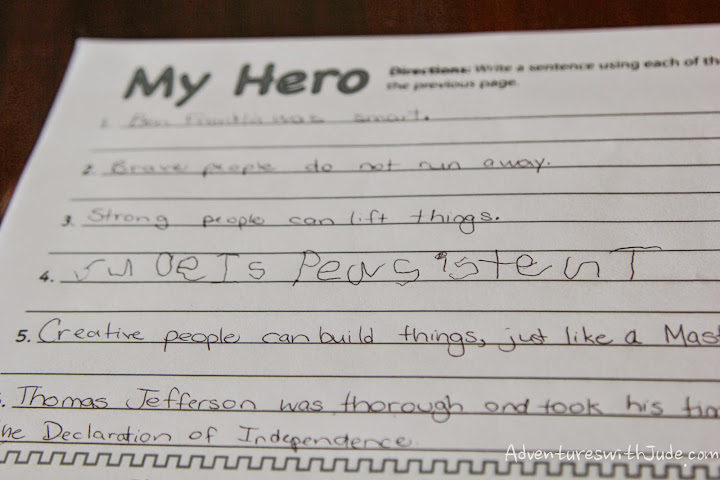 My Hero
Directions: Write a sentence using each of the
the previous page.
1. Ben Franklin was smart.
2. Brave people do not run away.
3. Strong people can lift things.
4. Jude Is Persistent
5. Creative people can build things, just like a Mast
6. Thomas Jefferson was thorough and took his tim
the Declaration of Independence.
AdventureswithJude.com